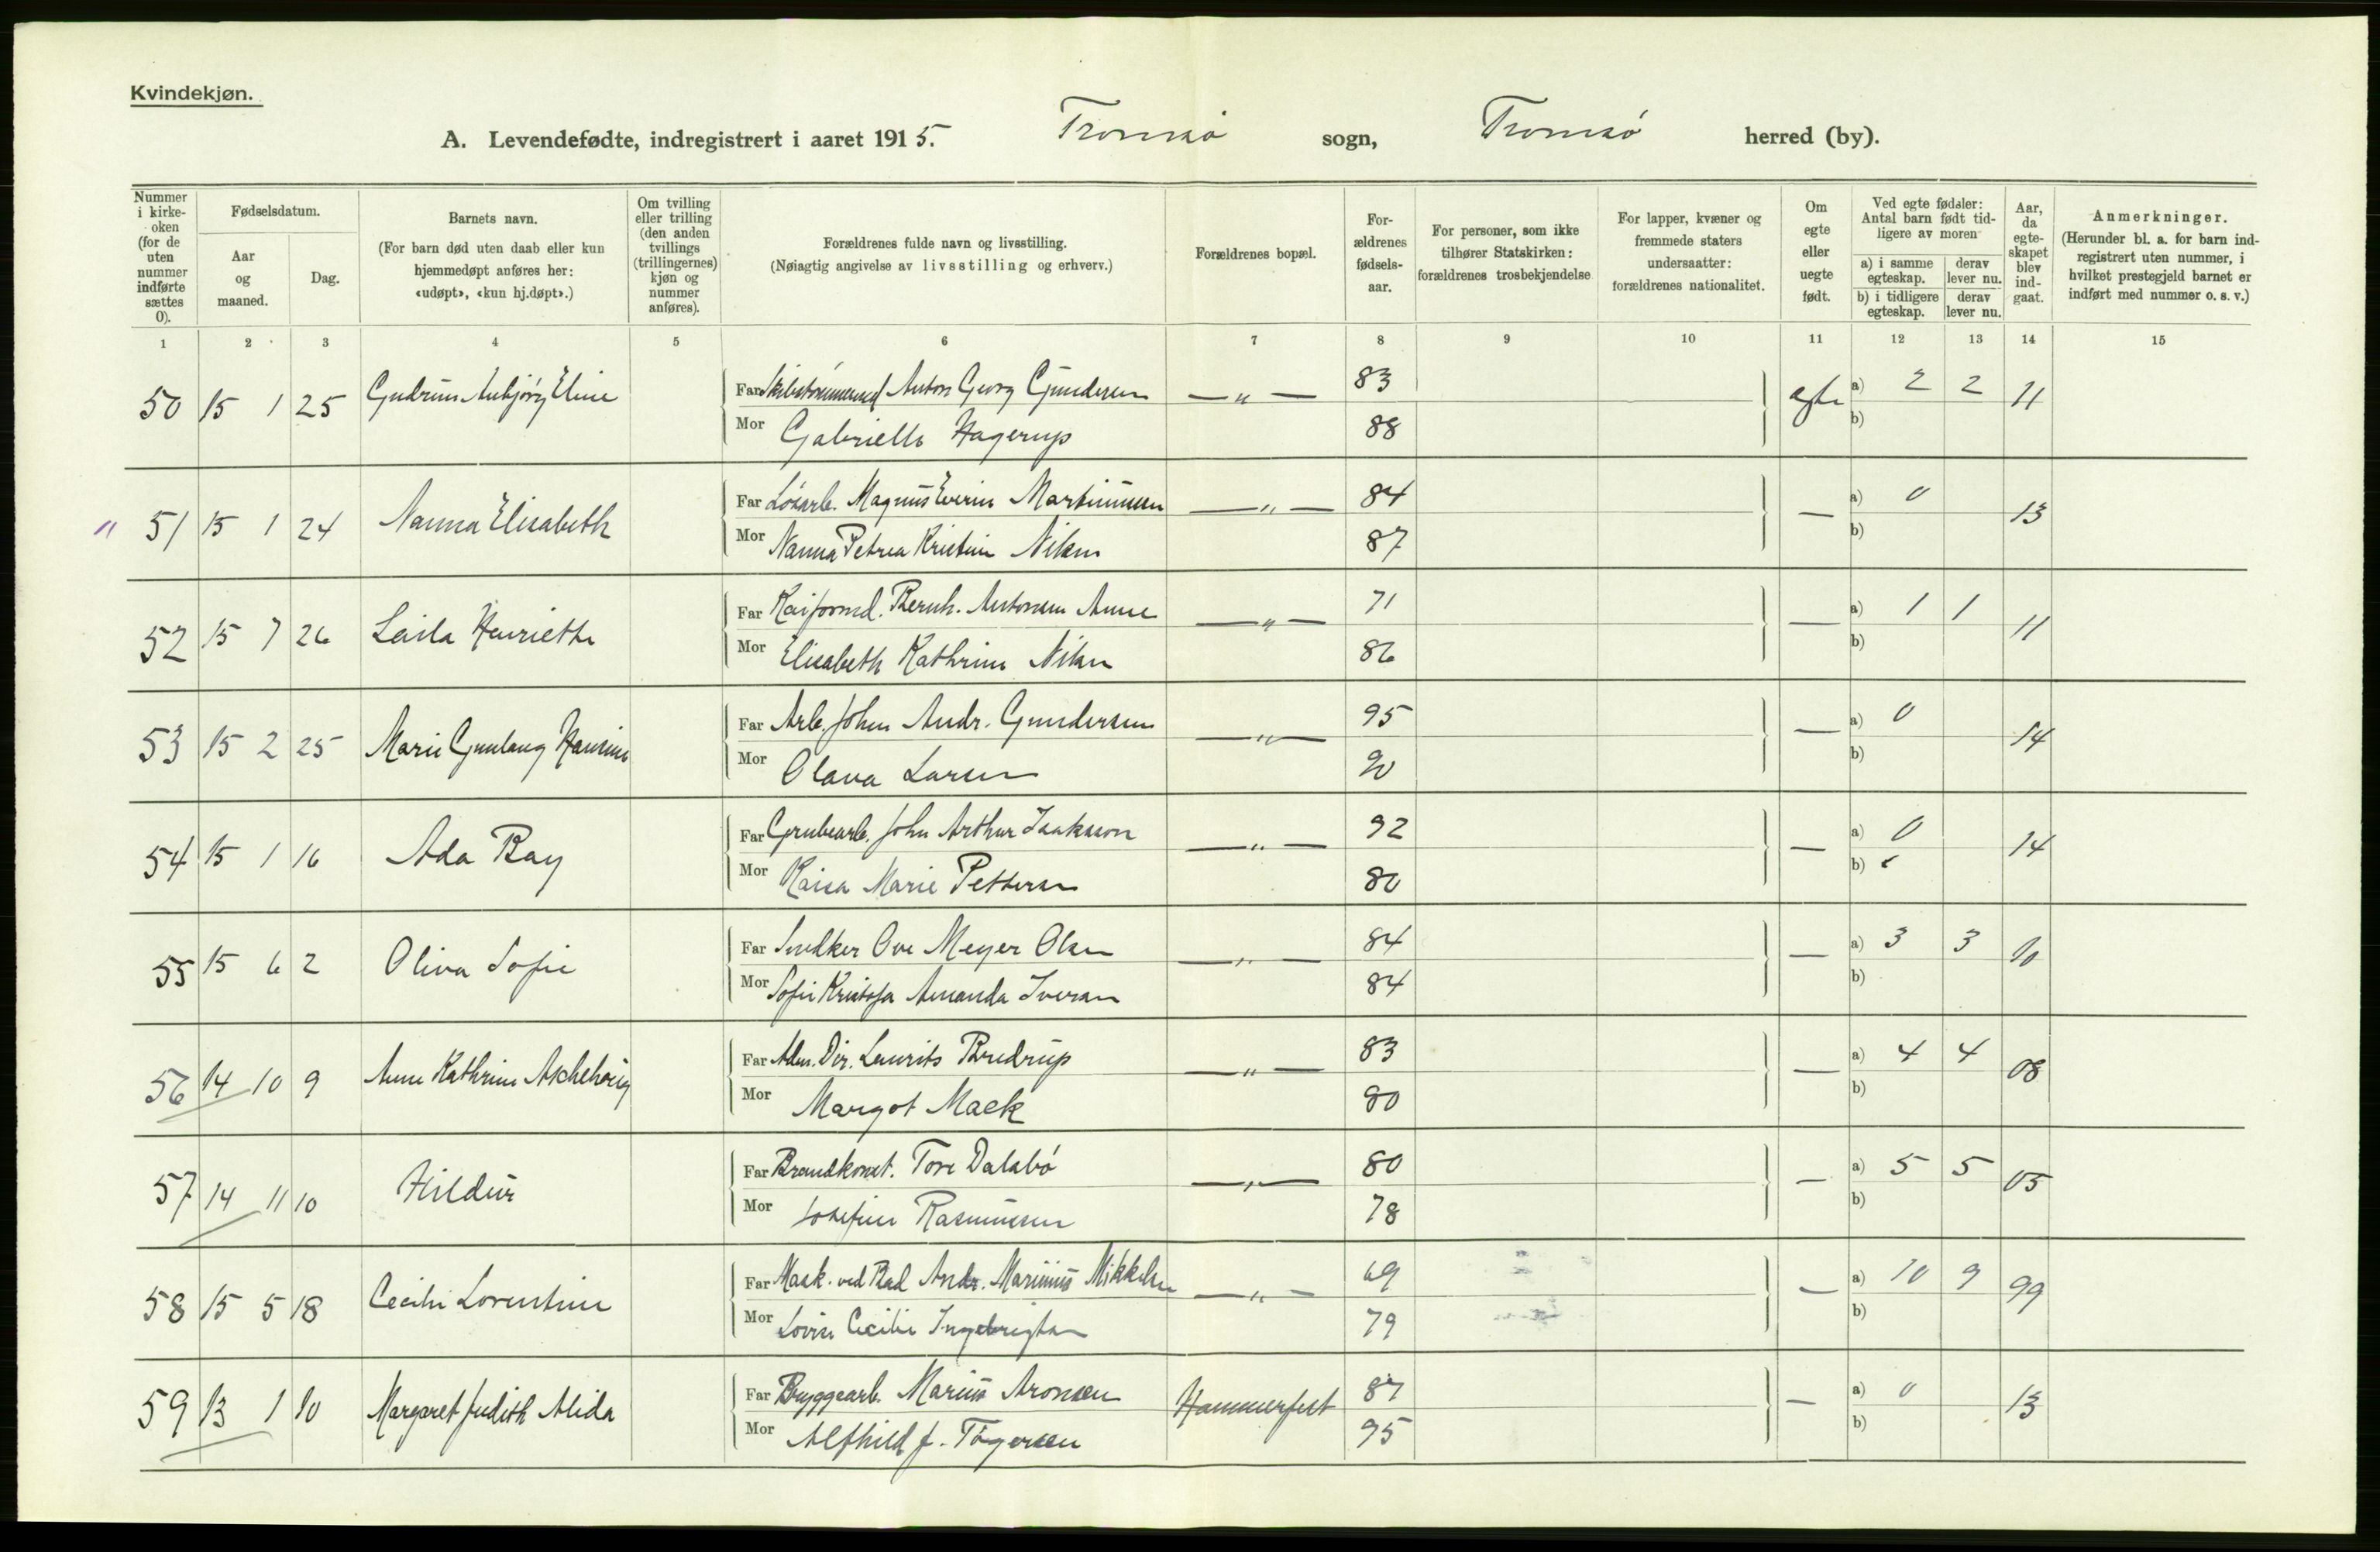 Kvindekjøn.
A. Levendefødte, indregistrert i aaret 1915. Tromsø sogn, Tromsø herred (by).
Nummer i kirke-oken (for de uten nummer indførte sættes 0).
Fødselsdatum.
Aar og maaned.
Dag.
Barnets navn.
(For barn død uten daab eller kun hjemmedøpt anføres her: «udøpt», «kun hj.døpt».)
Om tvilling eller trilling (den anden tvillings (trillingernes) kjøn og nummer anføres).
Forældrenes fulde navn og livsstilling.
(Nøiagtig angivelse av livsstilling og erhverv.)
Forældrenes bopæl.
For-ældrenes fødsels-aar.
For personer, som ikke tilhører Statskirken: forældrenes trosbekjendelse
For lapper, kvæner og fremmede staters undersaatter: forældrenes nationalitet.
Om egte eller uegte født.
Ved egte fødsler: Antal barn født tid-ligere av moren
a) i samme egteskap.
derav lever nu.
b) i tidligere egteskap.
derav lever nu.
Aar, da egte-skapet blev ind-gaat.
Anmerkninger.
(Herunder bl. a. for barn ind-registrert uten nummer, i hvilket prestegjeld barnet er indført med nummer o. s. v.)
1 2 3 4 5 6 7 8 9 10 11 12 13 14 15
50 15 1 25 Gudrun Anbjørg Eline Far Anton Georg Gundersen —„— 83 egte a) 2 2 11
Mor Gabrielle Hagerup 88 b)
„ 51 15 1 24 Nanna Elisabeth Far Løsarb. Magnus Martinussen —„— 84 — a) 0 13
Mor Nanna Petrea Kristine Nilsen 87 b)
52 15 7 26 Leila Henriette Far Kaiformd. Bernh. Antonsen Aune —„— 71 — a) 1 1 11
Mor Elisabeth Kathrine Nilsen 86 b)
53 15 2 25 Marie Gunlaug Hansine Far Arb. Johan Andr. Gundersen —„— 95 — a) 0 14
Mor Olava Larsen 90 b)
54 15 1 16 Ada Ray Far Grubearb. John Arthur Isaksson —„— 92 — a) 0 14
Mor Kaisa Marie Pettersen 80 b)
55 15 6 2 Oliva Sofie Far Snedker Ove Meyer Olsen —„— 84 — a) 3 3 10
Mor Sofie Kristofa Amanda Iversen 84 b)
56 14 10 9 Anne Kathrine Aschehoug Far Adm. Dir. Laurits Brudrup —„— 83 — a) 4 4 08
Mor Margot Mack 80 b)
57 14 11 10 Hildur Far Brandkonst. Tore Dalabø —„— 80 — a) 5 5 05
Mor Josefine Rasmussen 78 b)
58 15 5 18 Cecilie Lorentine Far Mask. ved Bad Andr. Marinius Mikkelsen —„— 69 — a) 10 9 99
Mor Lovise Cecilie Ingebrigtsen 79 b)
59 13 1 10 Margaret Judith Alida Far Bryggearb. Marius Aronsen Hammerfest 87 — a) 0 13
Mor Alfhild J. Tøgersen 95 b)